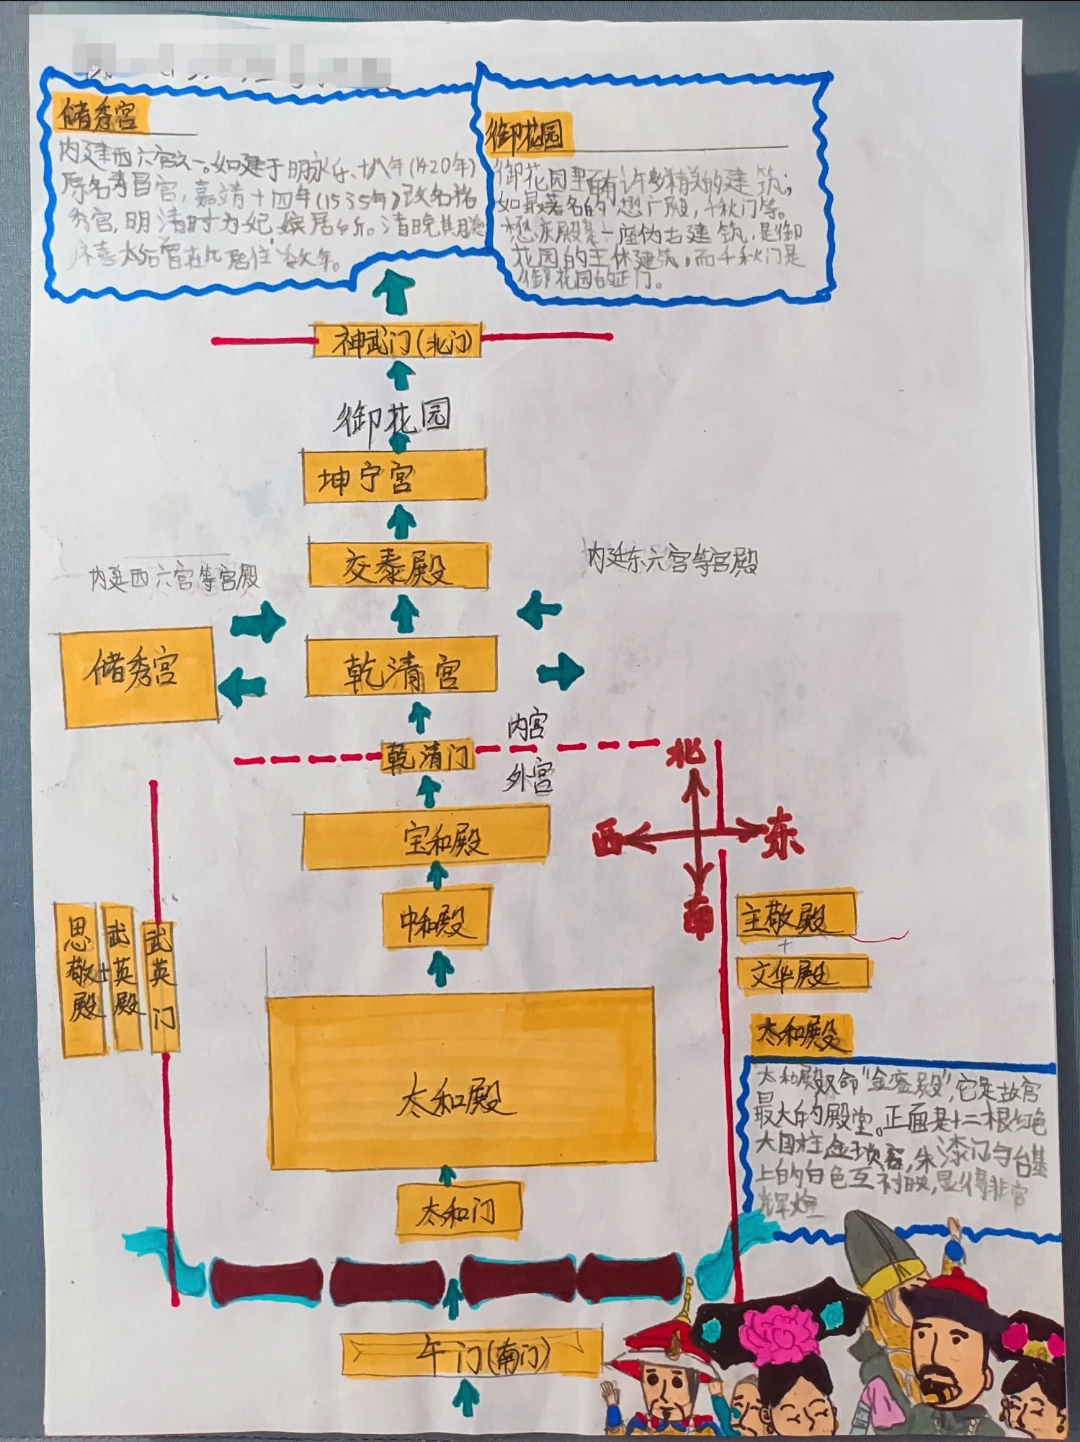 储秀宫
内廷西六宫之一。如建于明永乐十八年(1420年)
原名寿昌宫，嘉靖十四年(1535年)改名储
秀宫，明清时为妃嫔居所。清晚期慈
禧太后曾在此居住数年。
御花园
御花园里面有许多精美的建筑，
如最著名的 千秋门等。
殿是一座仿古建筑，是御
花园的主体建筑，而千秋门是
御花园的正门。
神武门(北门)
御花园
坤宁宫
交泰殿
内廷西六宫等宫殿
内廷东六宫等宫殿
储秀宫
乾清宫
内宫
乾清门
外宫
北
西
东
南
宝和殿
中和殿
思敬殿
武英殿
武英门
主敬殿
文华殿
太和殿
太和殿
太和殿又命“金銮殿”，它是故宫
最大的殿堂。正面是十二根红色
大圆柱，金琐窗，朱漆门与台基
上的白色互衬映，显得非常
辉煌
太和门
午门(南门)